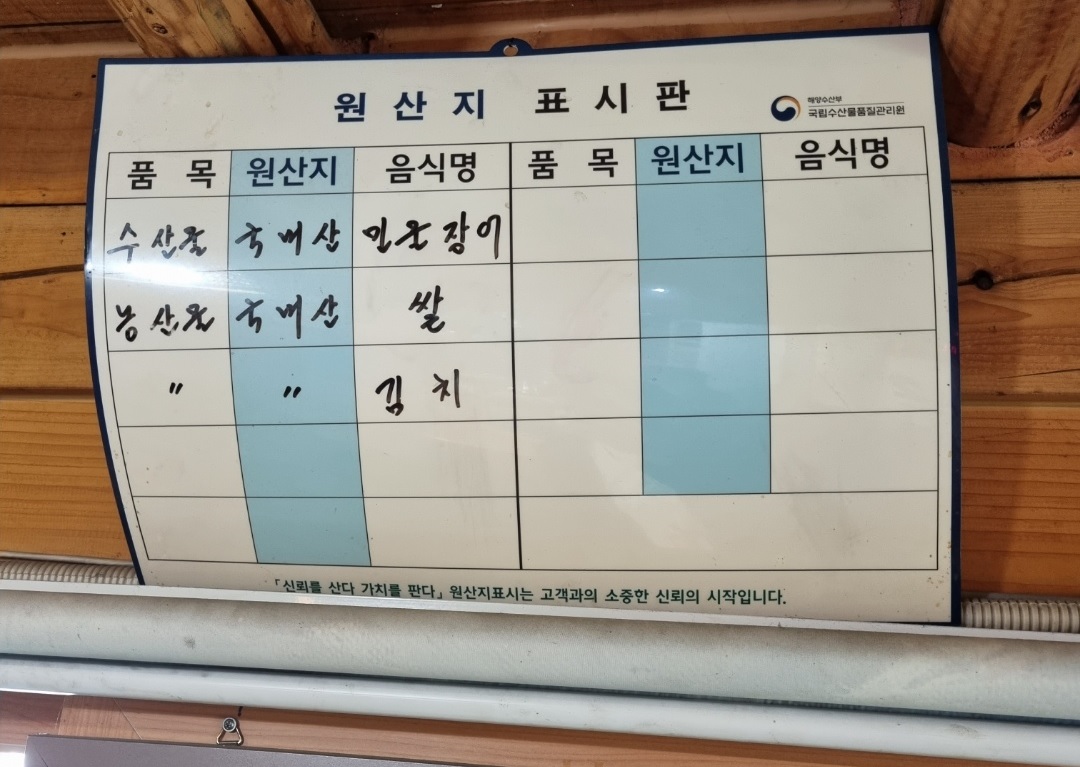 원산지 표시판
해양수산부
국립수산물품질관리원
품 목 원산지 음식명 품 목 원산지 음식명
수산물 국내산 민물장어
농산물 국내산 쌀
〃 〃 김치
「신뢰를 산다 가치를 판다」 원산지표시는 고객과의 소중한 신뢰의 시작입니다.